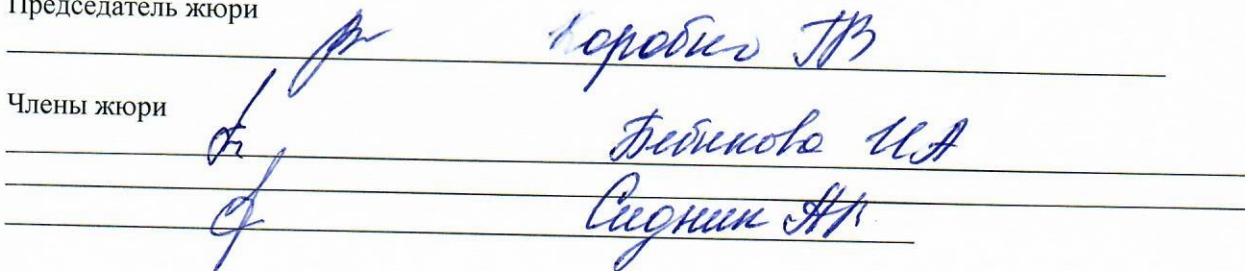 Председатель жюри
Коробко ГВ
Члены жюри
Бебикова ИА
Сидник